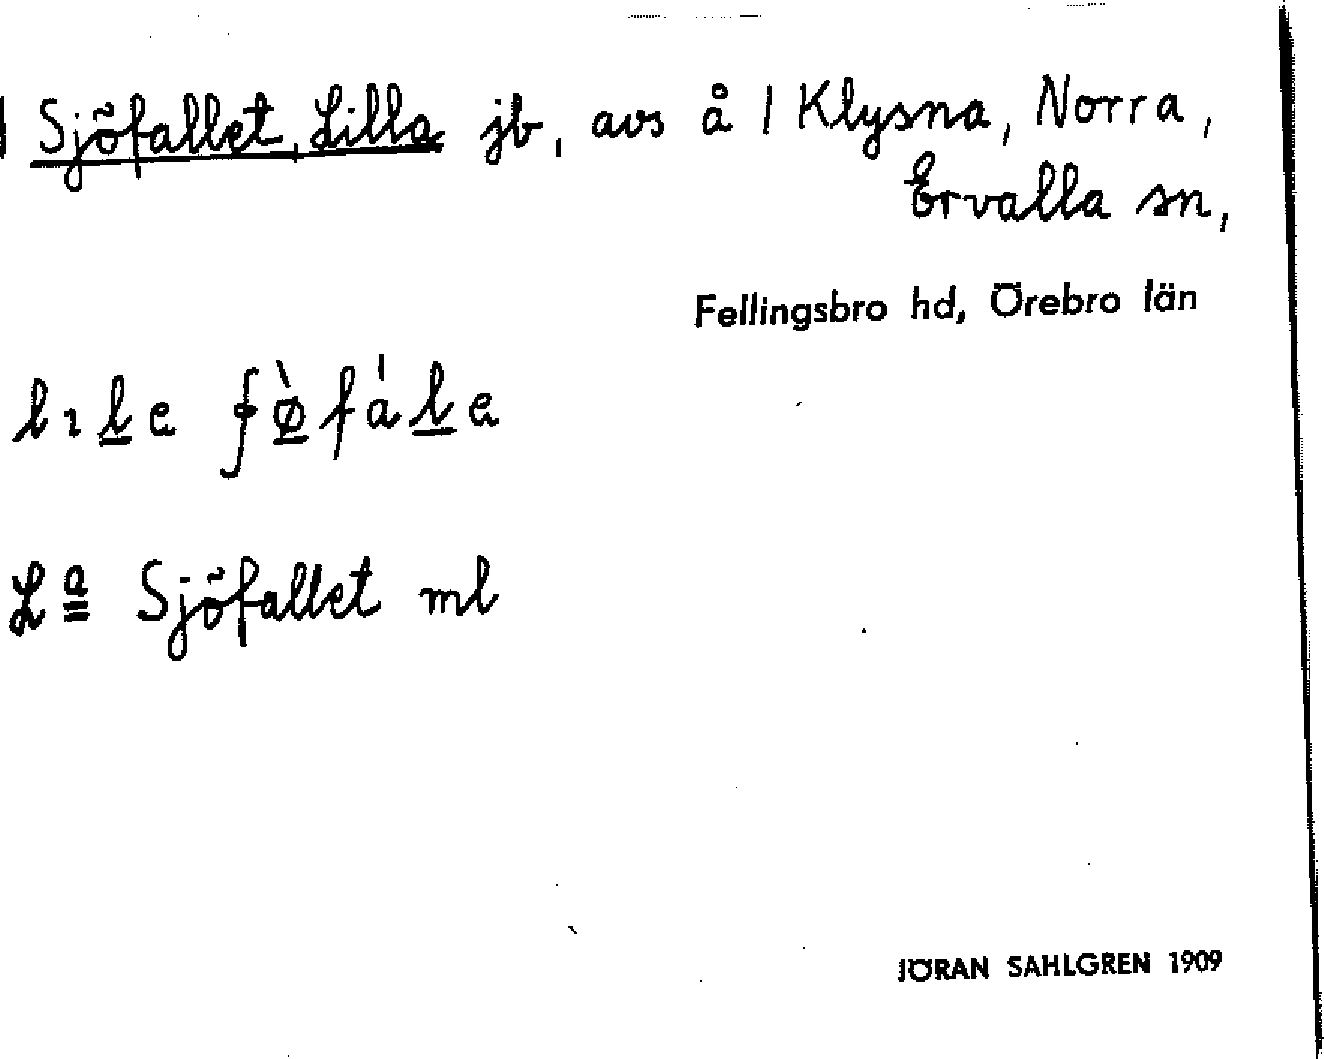 Sjöfallet, Lilla jb, avs å / Klysna, Norra,
Ervalla sn,
Fellingsbro hd, Örebro län
Lª Sjöfallet ml
JÖRAN SAHLGREN 1909